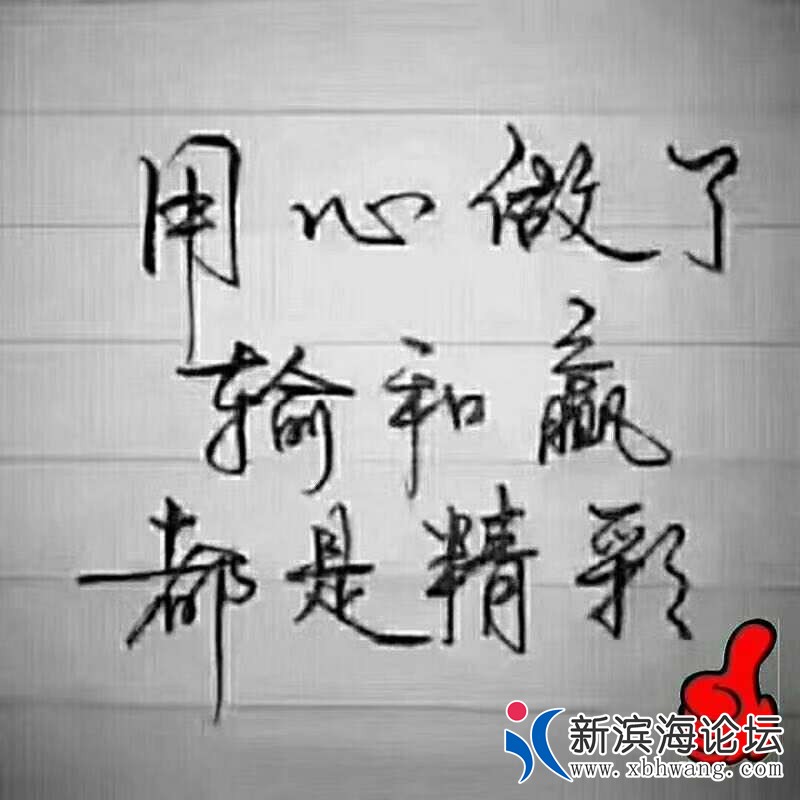 用心做了
输和赢
都是精彩
新滨海论坛
www.xbhwang.com